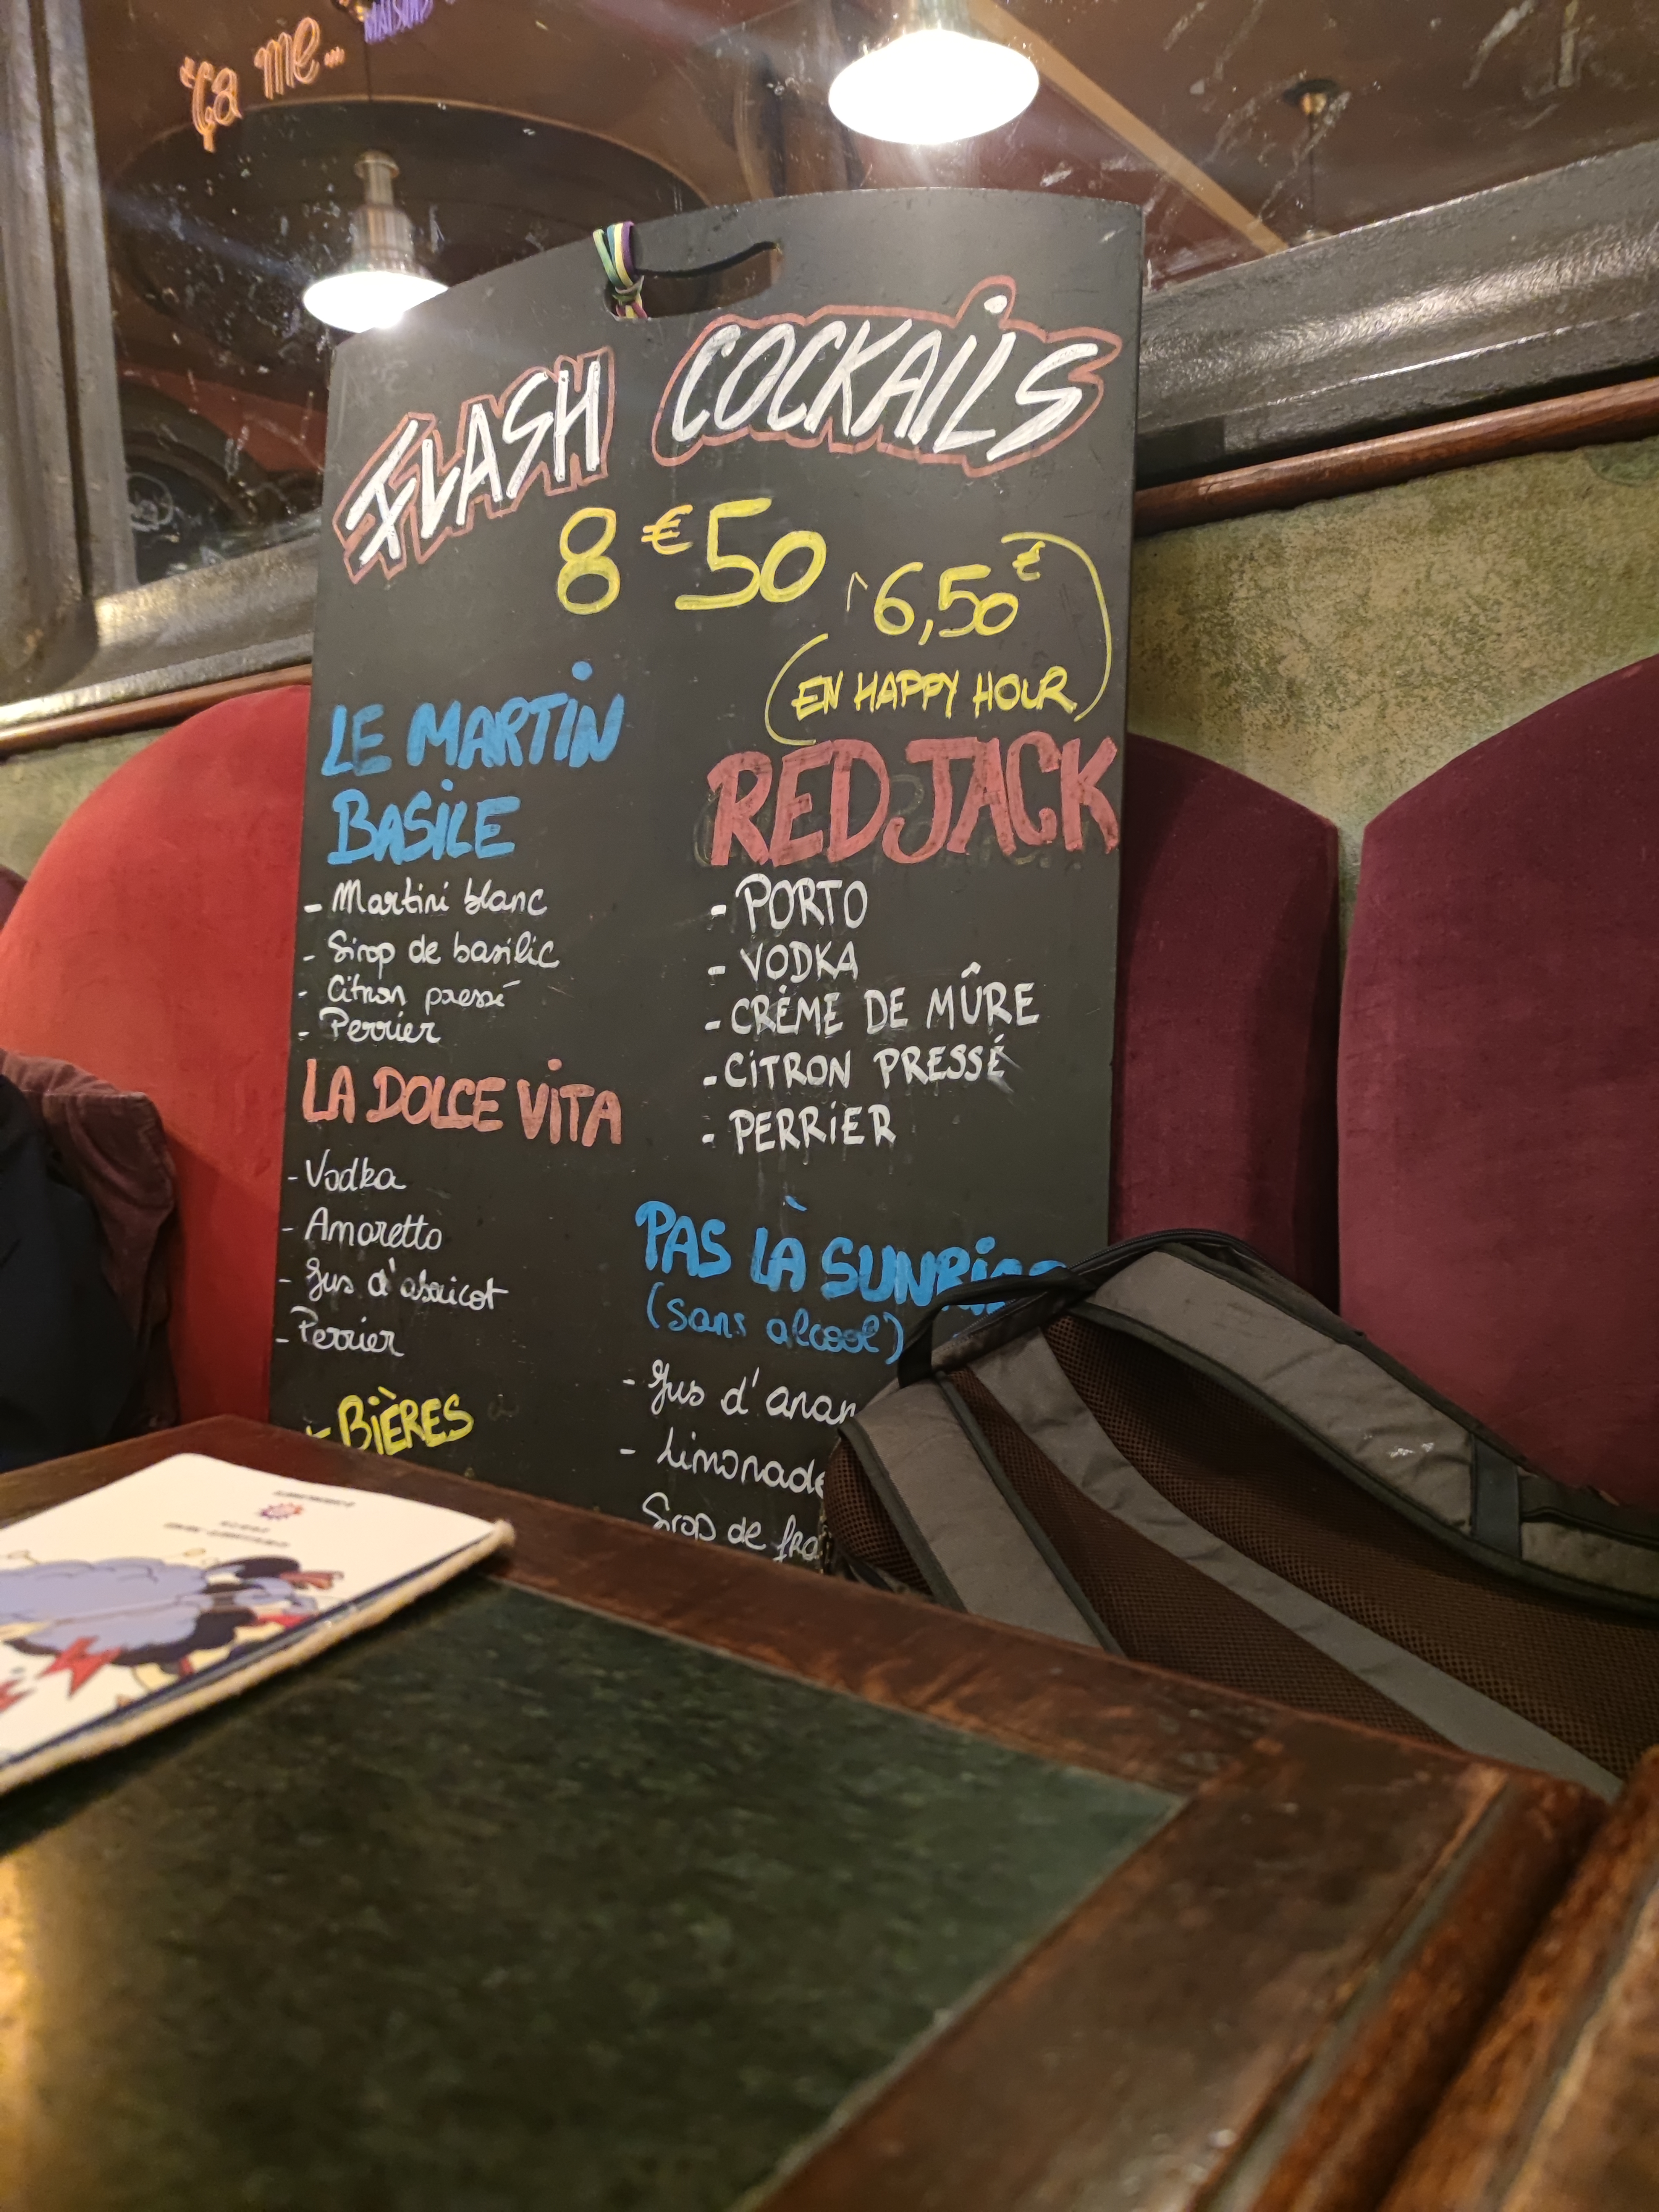 ça me...
FLASH COCKAILS
8€50
6,50€
(EN HAPPY HOUR)
LE MARTIN
BASILE
- Martini blanc
- Sirop de basilic
- Citron pressé
- Perrier
LA DOLCE VITA
- Vodka
- Amaretto
- Jus d'abricot
- Perrier
+ BIÈRES
RED JACK
- PORTO
- VODKA
- CRÈME DE MÛRE
- CITRON PRESSÉ
- PERRIER
PAS LÀ SUNRISE
(sans alcool)
- Jus d'anan
- Limonade
Sirop de fra